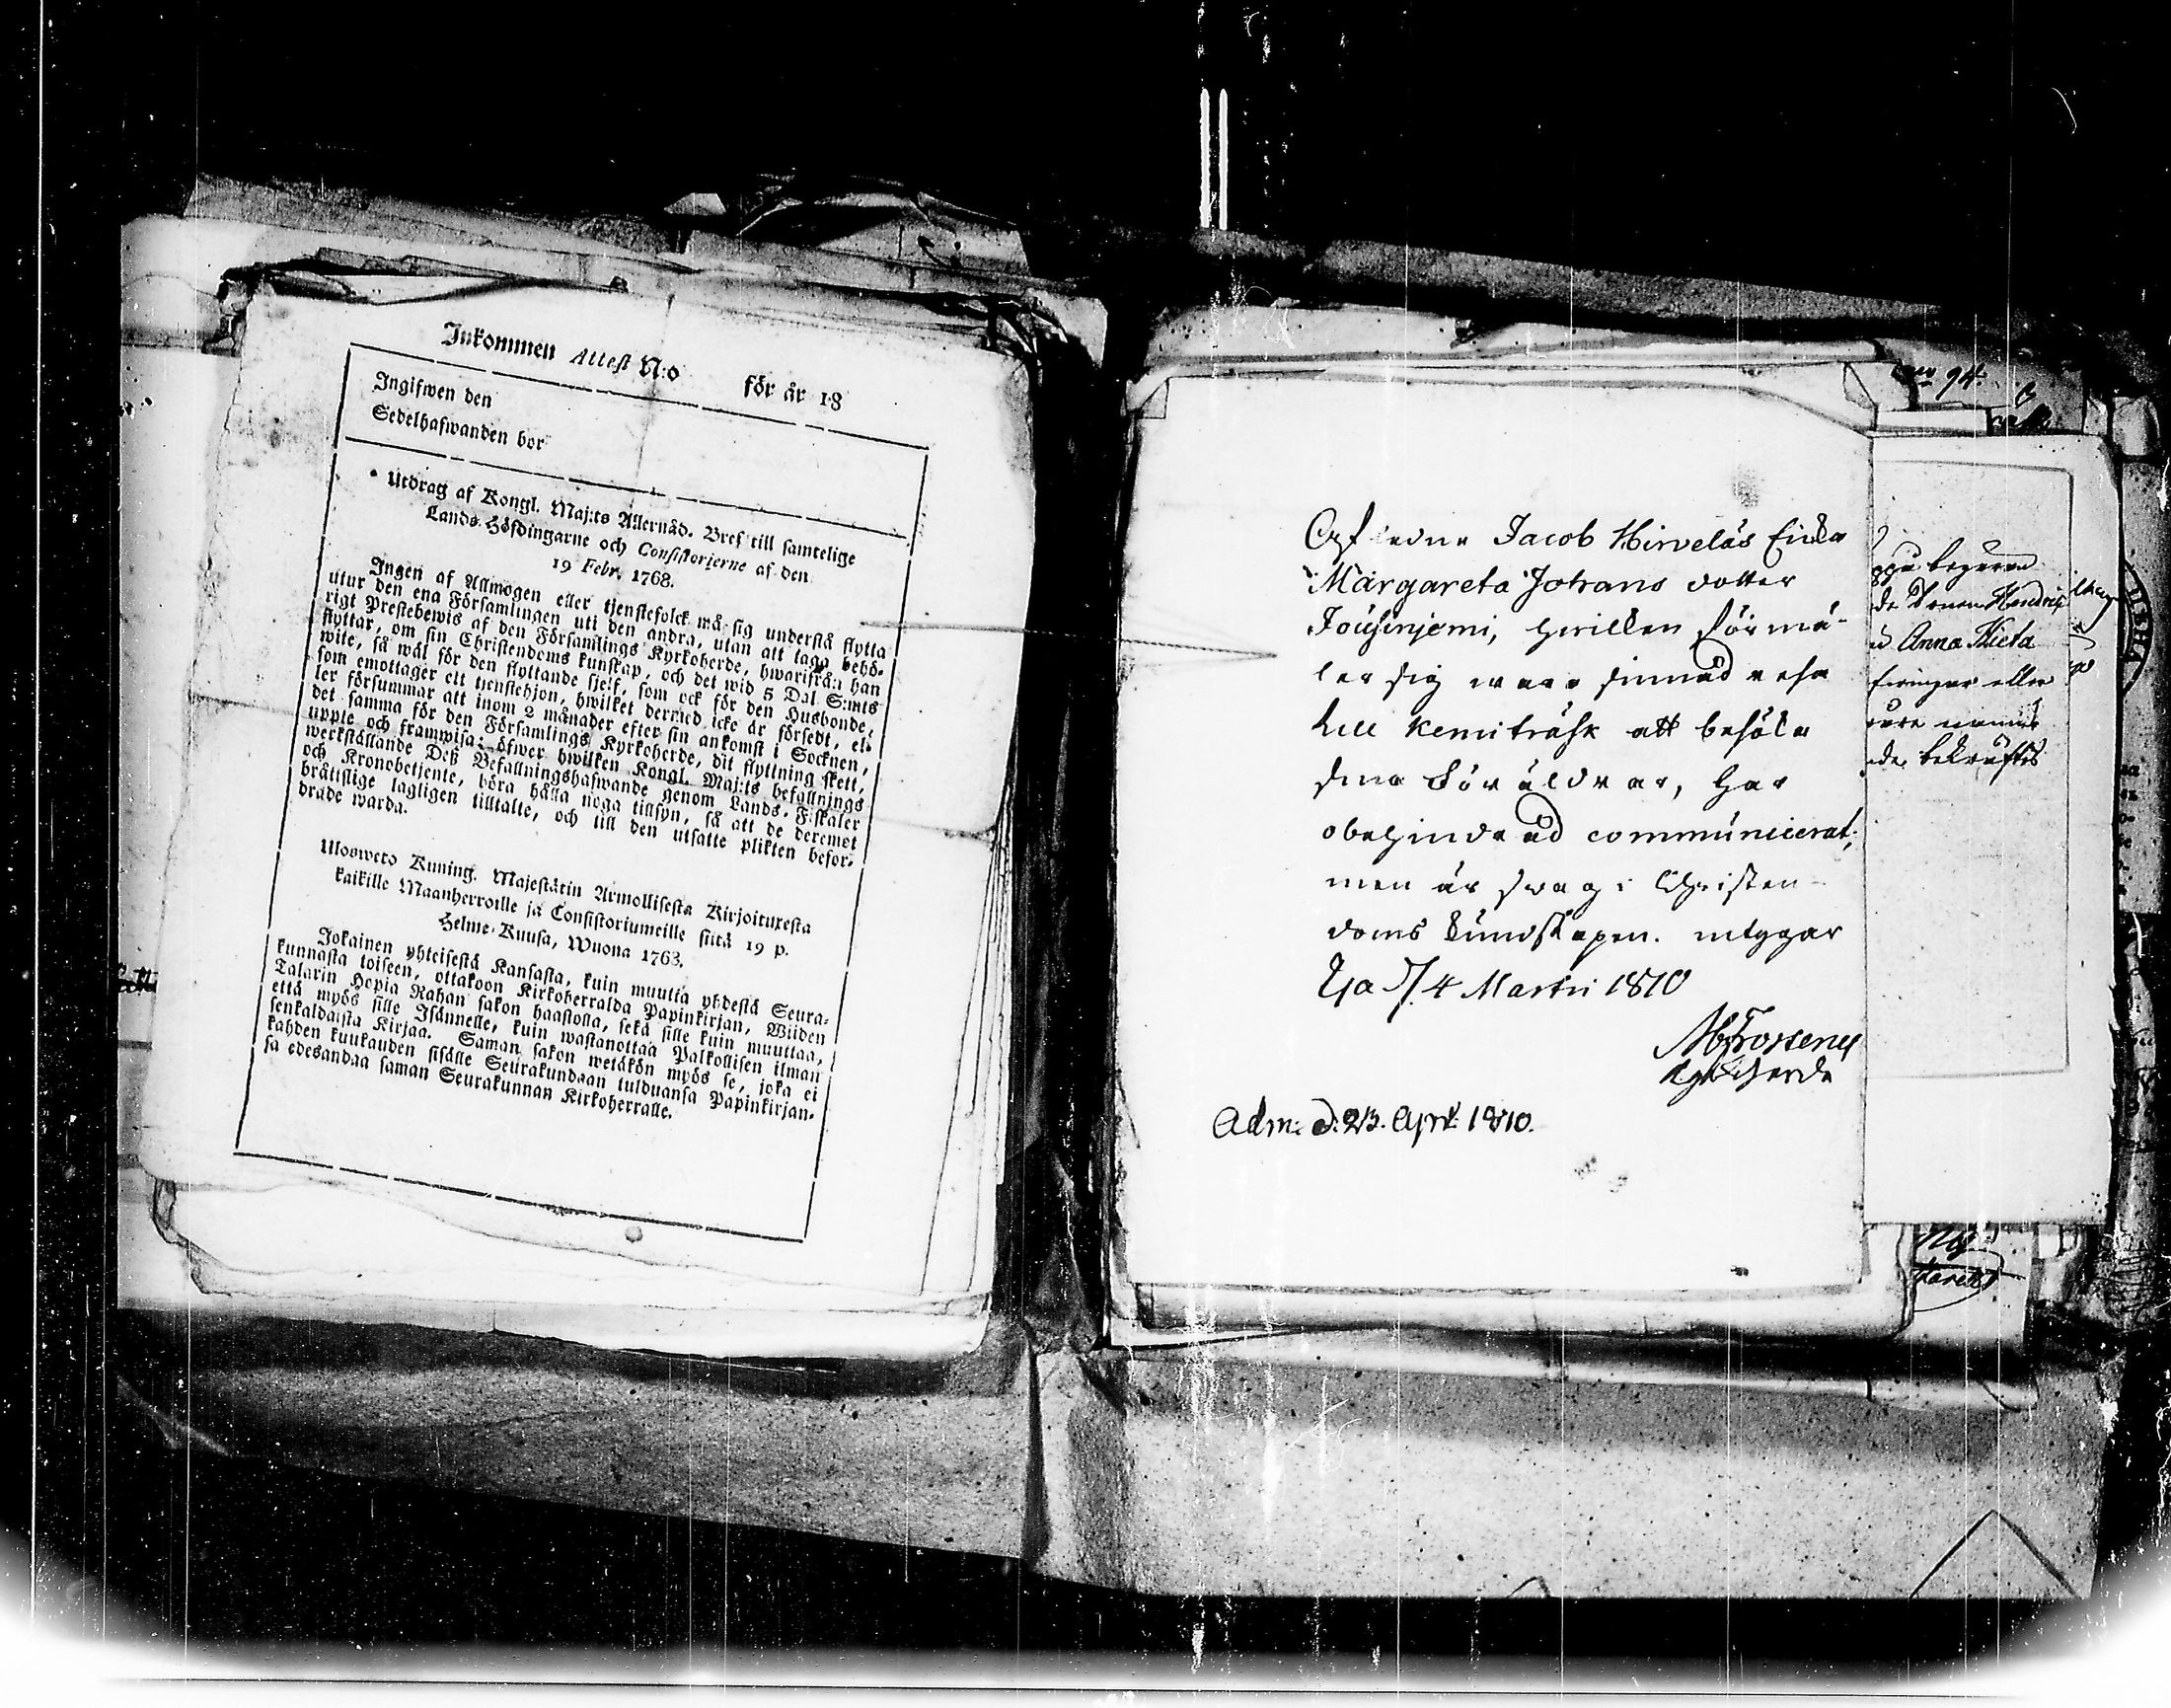 Inkommen Attest N:o för år 18
Ingifwen den
Sedelhafwanden bor
Utdrag af Kongl. Maj:ts Allernåd. Bref till samtelige
Lands-Höfdingarne och Consistorierne af den
19 Febr. 1768.
Ingen af Allmogen eller tjenstefolck må sig understå flytta
utur den ena Församlingen uti den andra, utan att taga behö-
rigt Prestebewis af den Församlings Kyrkoherde, hwarifrån han
flyttar, om sin Christendoms kunskap, och det wid 5 Dal S:mts
wite, så wäl för den flyttande sjelf, som ock för den Husbonde,
som emottager ett tjenstehjon, hwilket dermed icke är försedt, el-
ler försummar att inom 2 månader efter sin ankomst i Socknen,
det samma för den Församlings Kyrkoherde, dit flyttning skett,
uppte och framwisa; öfwer hwilken Kongl. Maj:ts befallnings
werkställande Deß Befallningshafwande genom Lands-Fiskaler
och Kronobetjente, böra hålla noga tillsyn, så att de deremot
bråttslige lagligen tilltalte, och till den utsatte plikten befor-
drade warda.
Uloswero Kuning. Majestätin Armollisesta Kirjoituxesta
kaikille Maanherroille ja Consistoriumeille siitä 19 p.
Helme-Kuusa, Wuona 1763.
Jokainen yhteisestä Kansasta, kuin muutta yhdestä Seura-
kunnasta toiseen, ottakoon Kirkoherralda Papinkirjan, Wiiden
Talarin Hopia Rahan sakon haastolla, sekä sille kuin muuttaa,
että myös sille Isännelle, kuin wastanottaa Palkollisen ilman
senkaldaista Kirjaa. Saman sakon wetäkön myös se, joka ei
kahden kuukauden sisälle Seurakundaan tulduansa Papinkirjan-
sa edesandaa saman Seurakunnan Kirkoherralle.
Jacob Hirveläs Enka
Margareta Johans dotter
Jousinjemi, hvilken förmä-
ler sig wara sinnad resa
till Kemiträsk att besöka
sina Föräldrar, har
obehindrad communicerat;
men är swag i Christen-
doms kundskapen.
d. 4 Martii 1810
Adm: d. 23. Apr. 1810.
94.
begäran
Anna Kieta
eller
bekräftes